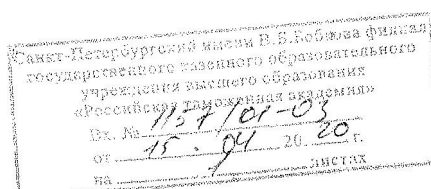 Санкт-Петербургский имени В.Б.Бобкова филиал
государственного казенного образовательного
учреждения высшего образования
«Российская таможенная академия»
Вх. № 1157/01-03
от 15.04 2020 г.
на 1 листах